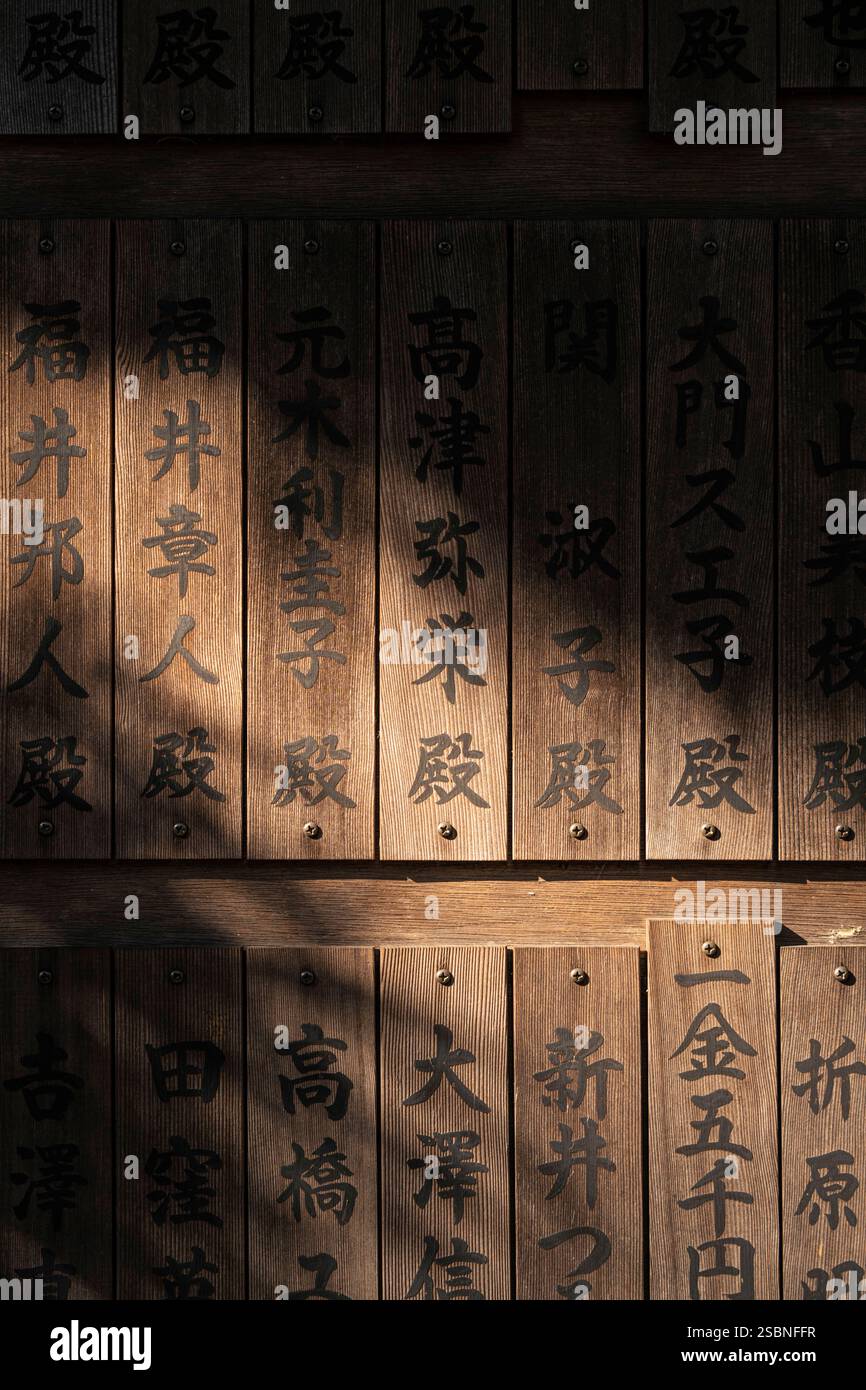 也
殿
殿
殿
殿
殿
香山美枝殿
大門スエ子殿
関淑子殿
髙津弥栄殿
元木利圭子殿
福井章人殿
福井邦人殿
折原昭
一金五千円
新井つ
大澤信
高橋
田窪英
吉澤直
alamy
Image ID: 2SBNFFR
www.alamy.com